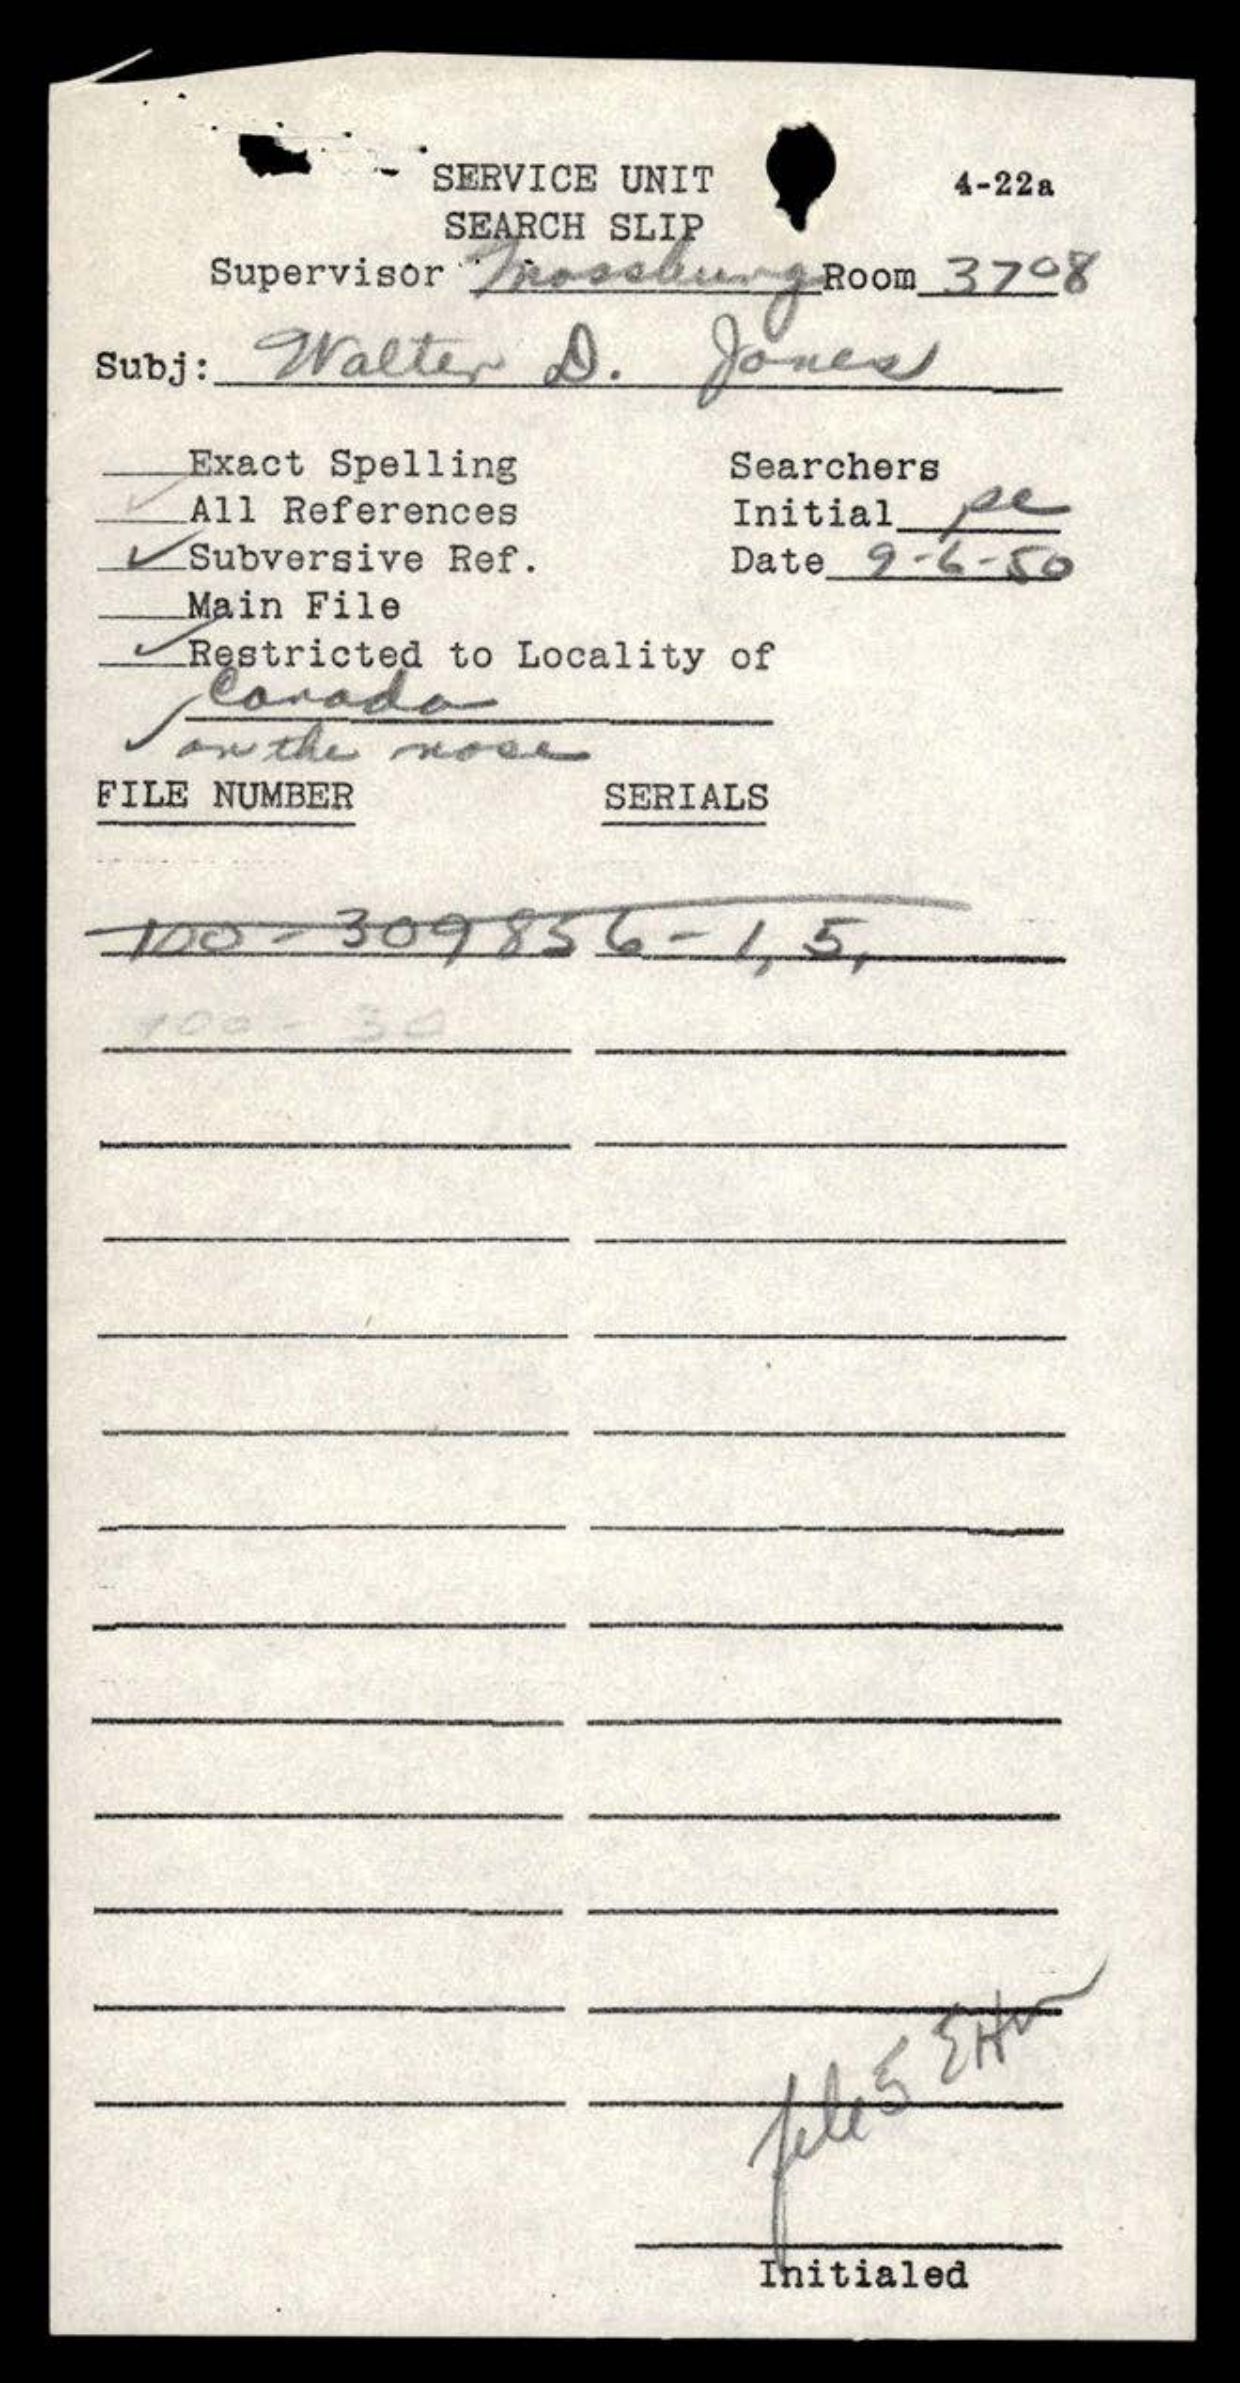 SERVICE UNIT 4-22a
SEARCH SLIP
Supervisor Mossburg Room 3708
Subj: Walter D. Jones
Exact Spelling Searchers
All References Initial pe
Subversive Ref. Date 9-6-50
Main File
Restricted to Locality of
Canada
on the nose
FILE NUMBER SERIALS
100-309856-1, 5,
100-30
file
Initialed